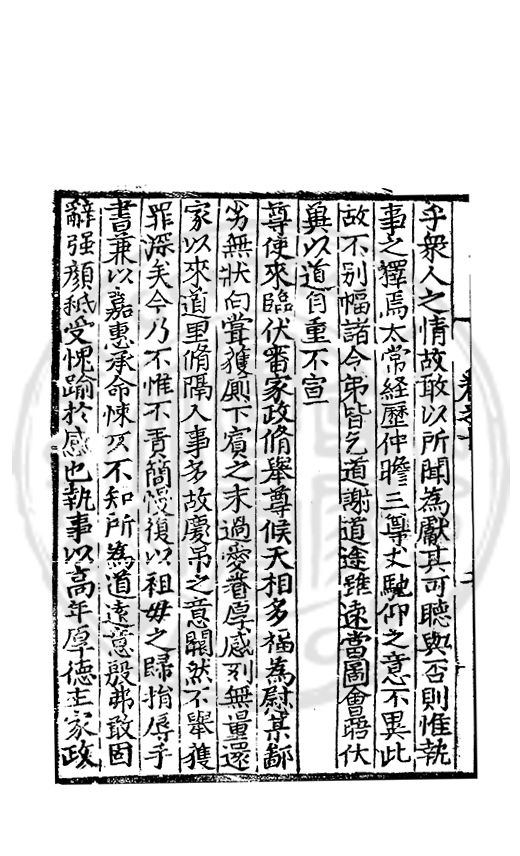 乎衆人之情故敢以所聞為獻其可聽與否則惟執
事之擇焉太常經歷仲瞻三尊丈馳仰之意不異此
故不别幅諸令弟皆乞道謝道途雖遠當圖會晤伏
兾以道自重不宣
尊使來臨伏審家政脩舉尊候天相多福為慰某鄙
劣無狀向嘗獲厠下賓之末過愛眷厚感刻無量還
家以來道里脩隔人事多故慶吊之意闕然不舉獲
罪深矣今乃不惟不責簡慢復以祖母之歸指辱手
書兼以嘉惠承命悚仄不知所為道遠意殷弗敢固
辭强顔祗受愧踰於感也執事以高年厚德主家政